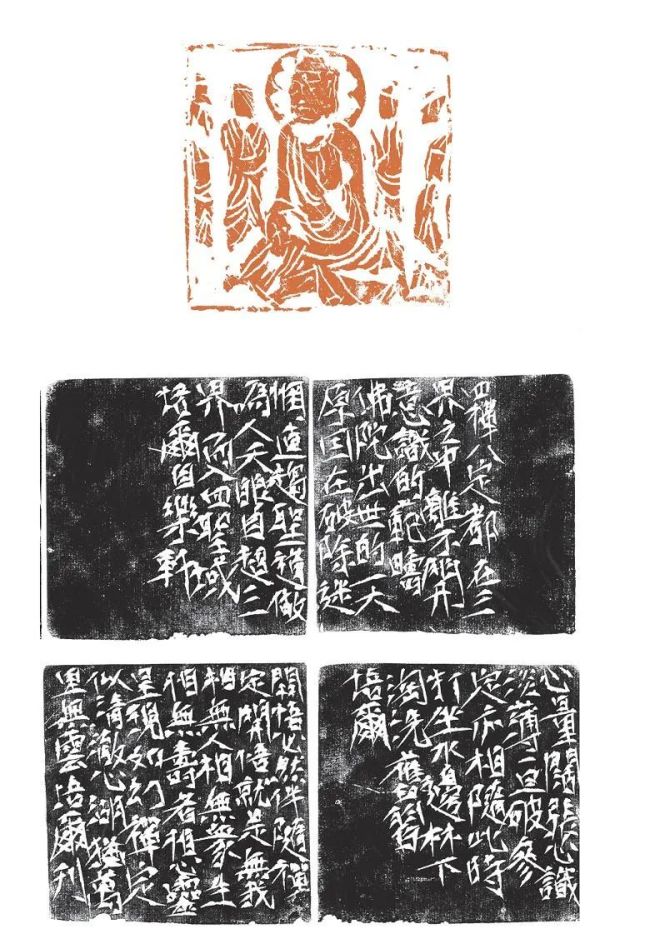 四禪八定都在三
界之中離不開
意識的範疇
佛陀出世的一大
原因在破除迷
惘直趨聖道做
為人天眼目超三
界而入四聖域
培爾自樂軒
心量開張心識
淡薄一旦破參
定亦相隨此時
打坐水邊林下
淘洗舊習
培爾
開悟必然伴隨禪
定開悟就是無我
相無人相無眾生
相無壽者相心靈
呈現如幻禪定
似清澈心湖猶萬
里無雲培爾刊